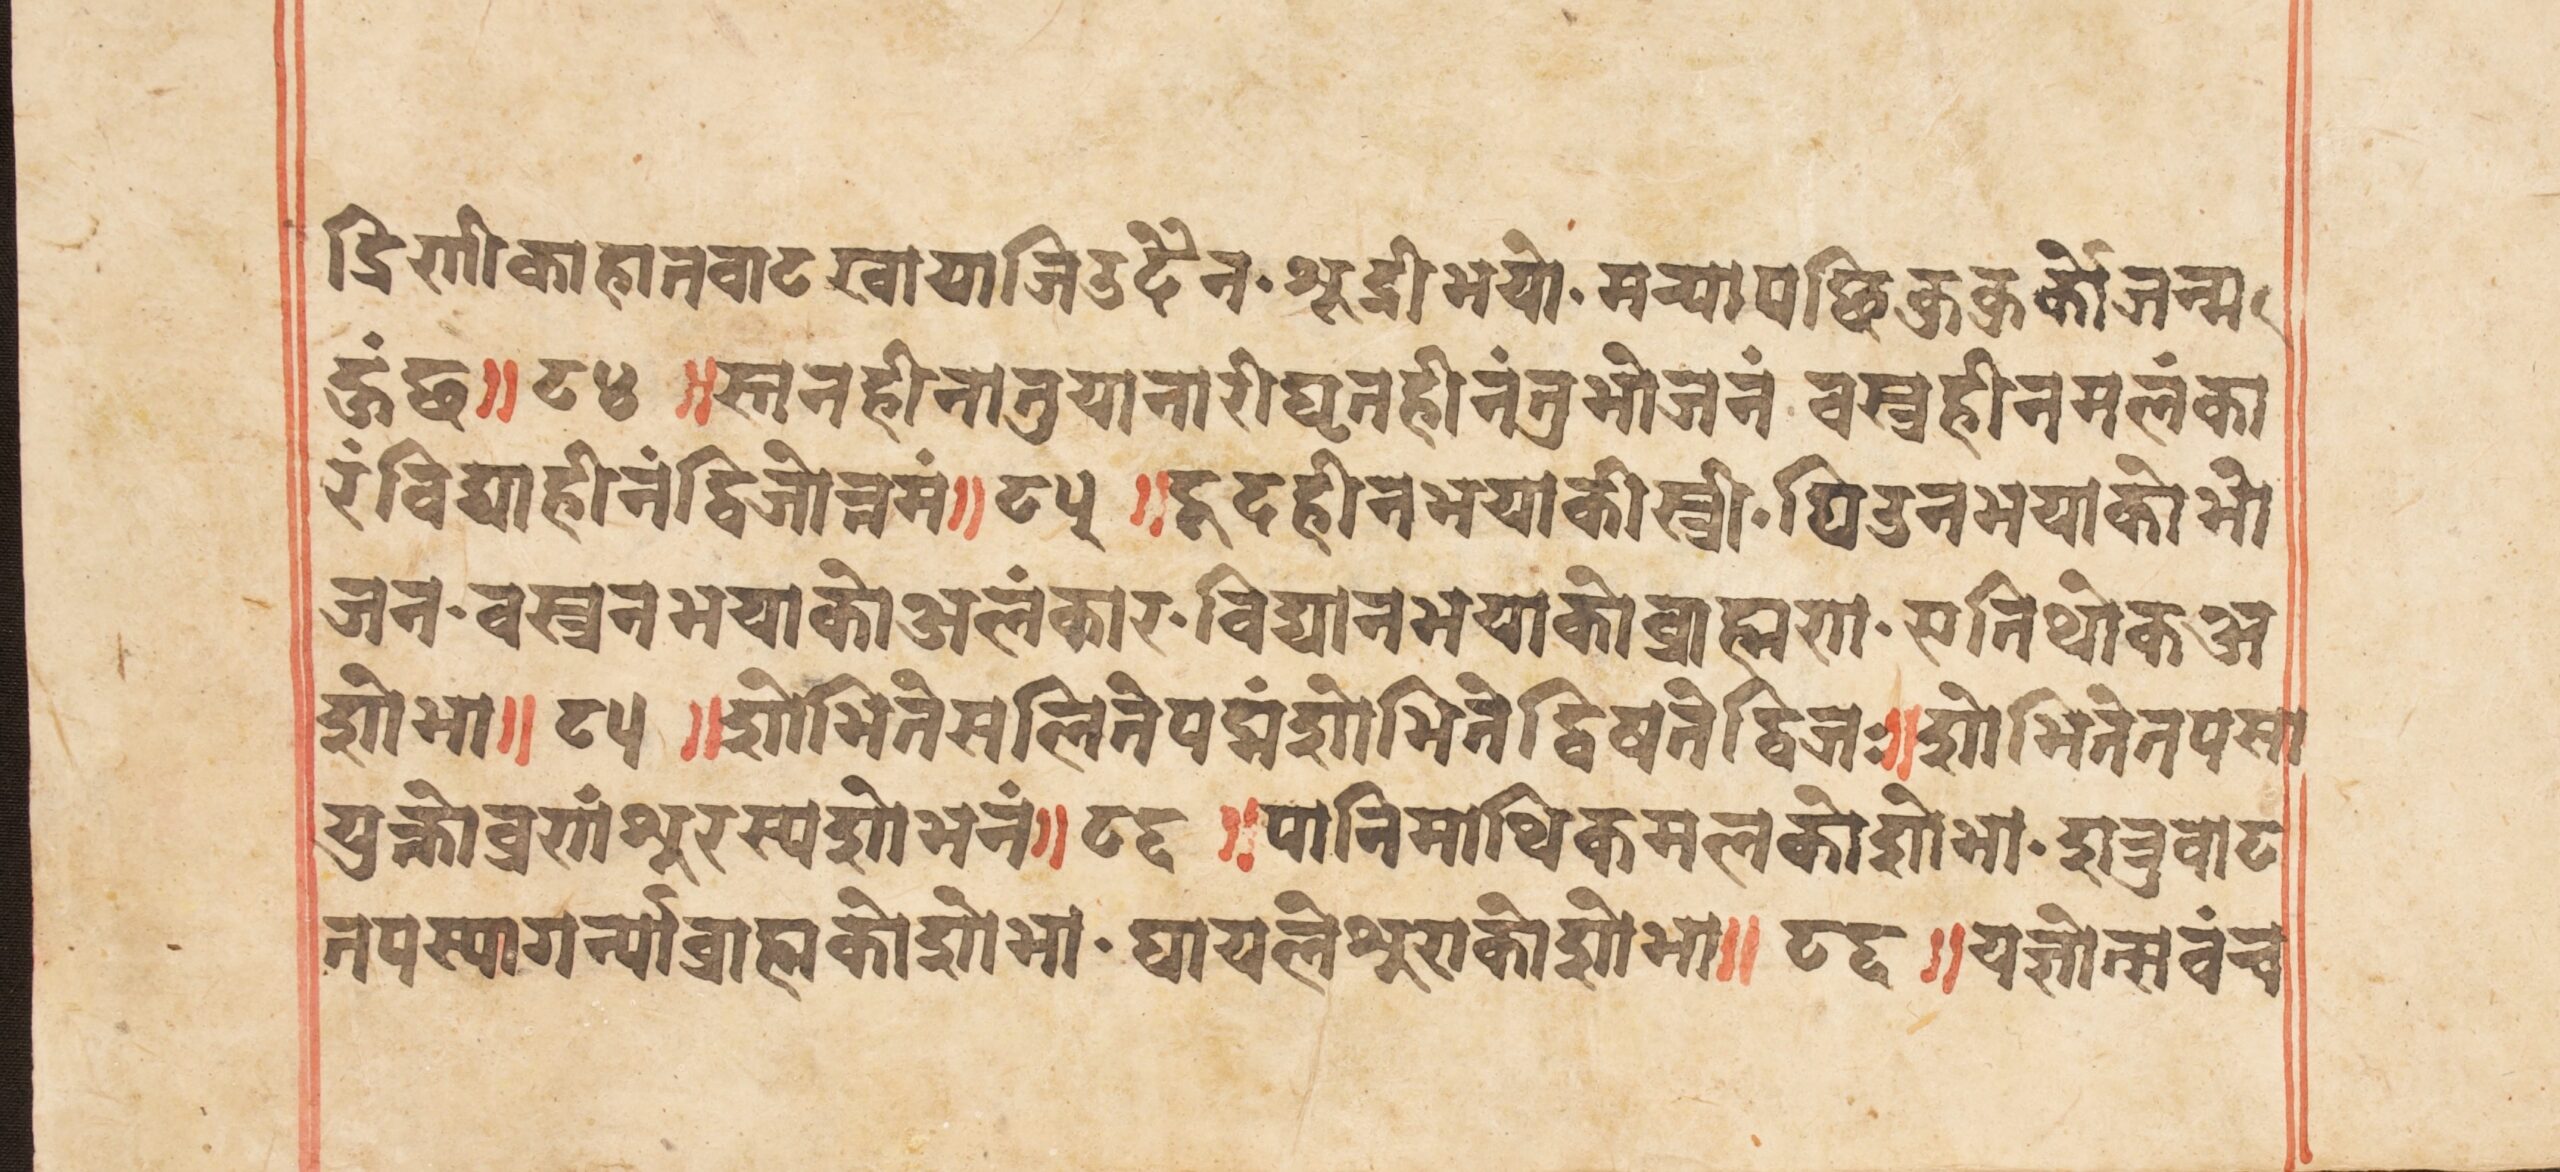 द्रिणीकाहातवाटखायाजिउदैन॰श्रूद्रीभयो॰मर्‍यापछिकुक्रर्कोजन्म
हुंछ॥ ८४ ॥स्तनहीनातुयानारीघृतहीनंतुभोजनं॰वस्त्रहीनमलंका
रंविद्याहीनंद्विजोत्तमं॥ ८५ ॥दूदहीनभयाकीस्त्री॰घिउनभयाकोभो
जन॰वस्त्रनभयाकोअलंकार॰विद्यानभयाकोब्राह्मण॰सतिथोकअ
शोभा॥ ८५ ॥शोभितेसलितेपद्मंशोभितेद्विषतेद्विजः॥शोभितेतपसा
युक्तोव्रणंश्रूरस्यशोभनं॥ ८६ ॥पानिमाथिकमलकोशोभा॰शत्रुवाट
तपस्यागर्न्याब्राह्मकोशोभा॰घायलेश्रूराकोशोभा॥ ८६ ॥यज्ञोत्सवंच